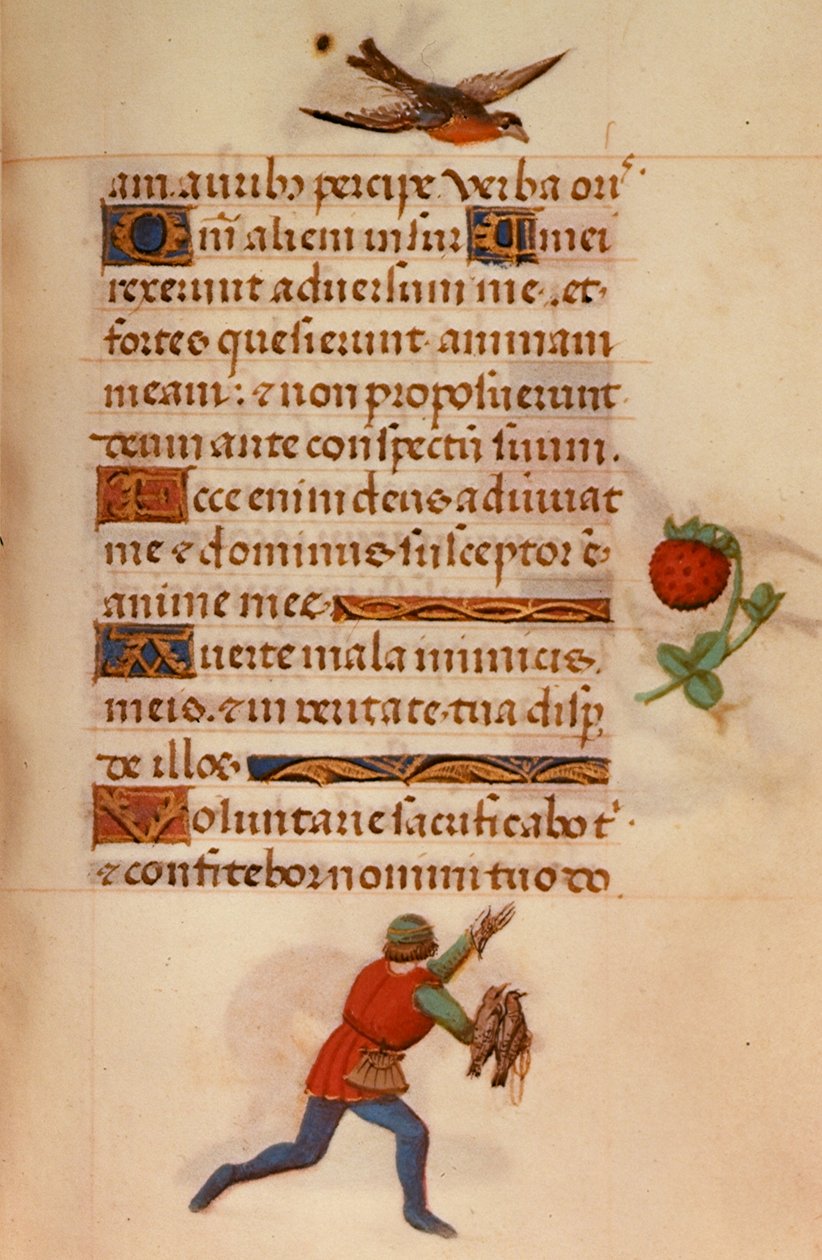 am auribꝰ percipe verba ori⁹.
Qm̄ alieni insur r mei
rexerunt aduersum me. et
fortes quesierunt animam
meam: ⁊ non proposuerunt
deum ante conspectū suum.
Ecce enim deus adiuuat
me ⁊ dominus susceptor ē
anime mee
Auerte mala inimicis
meis. ⁊ in veritate tua disp
de illos
Voluntarie sacrificabo t'.
⁊ confitebor nomini tuo do